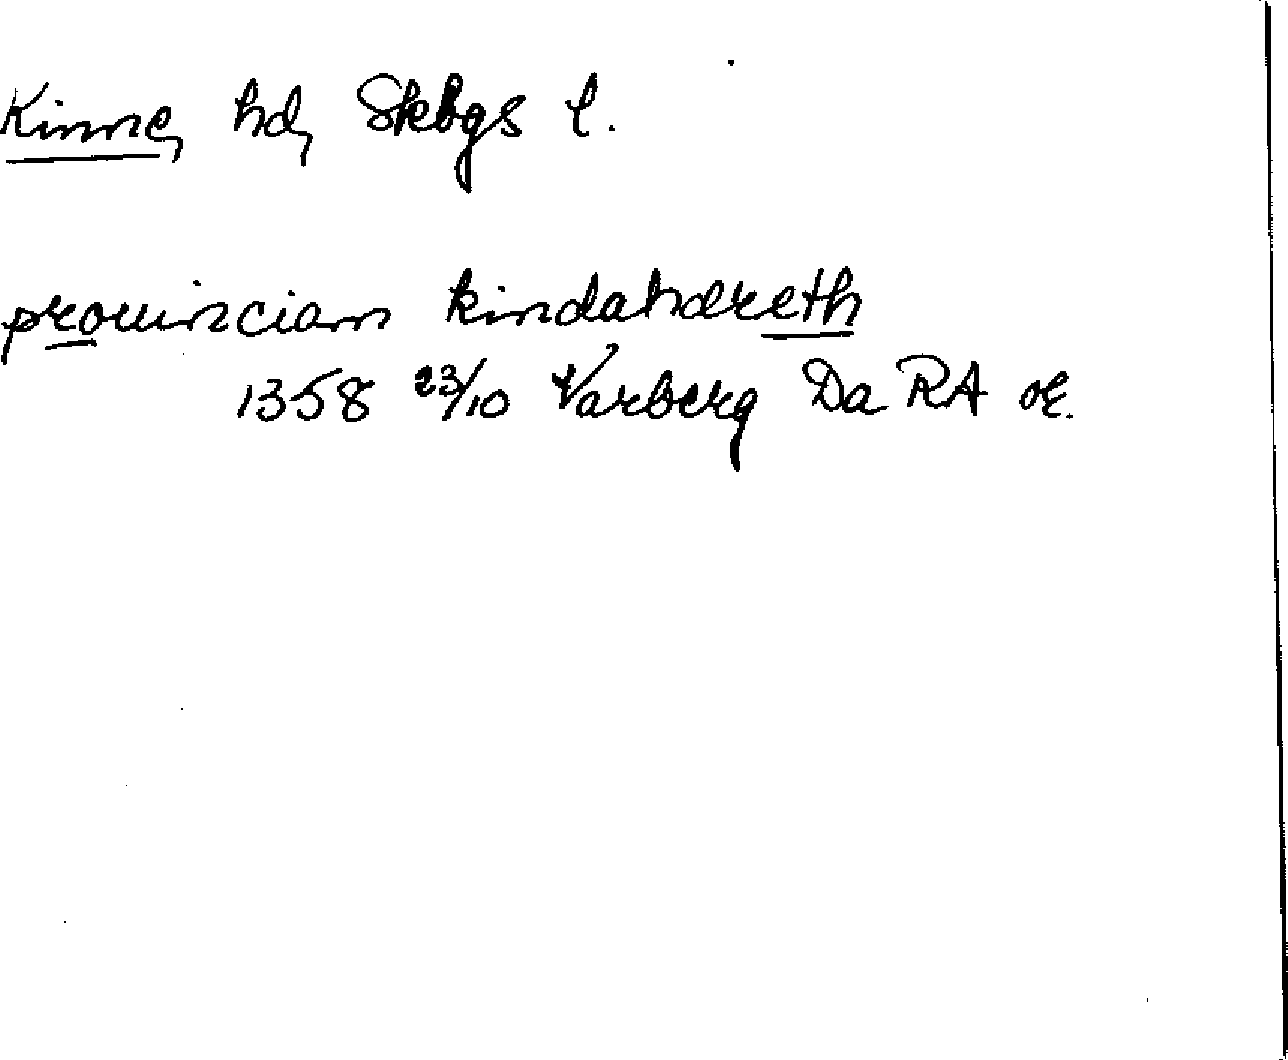 Kinne, hd, Skbgs l.
prouinciam kindahdreth
1358 23/10 Varberg Da RA or.